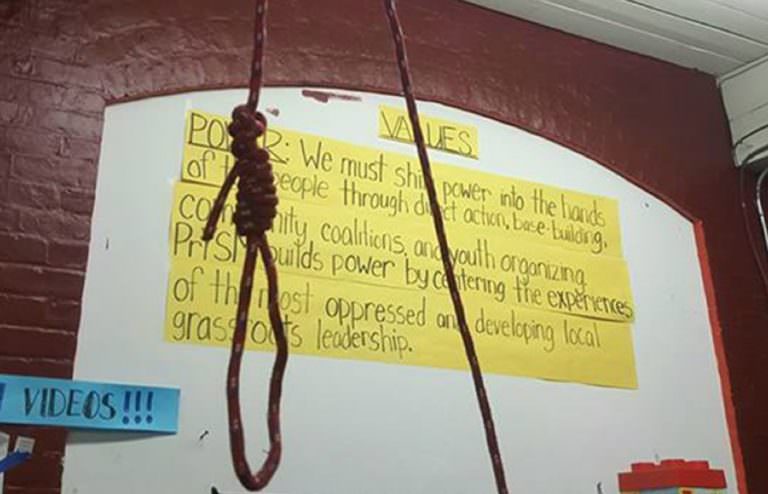 VALUES
POWER: We must shift power into the hands
of the people through direct action, base-building,
community coalitions, and youth organizing.
PrYSM builds power by centering the experiences
of the most oppressed and developing local
grassroots leadership.
VIDEOS!!!